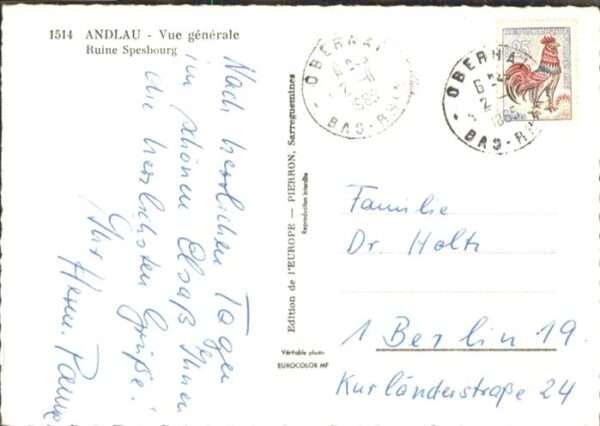 1514 ANDLAU - Vue générale
Ruine Spesbourg
Nach herrlichen Tagen
im schönen Elsaß Ihnen
die herzlichsten Grüße!
Ihr Herm.
Edition de l'EUROPE — PIERRON, Sarreguemines
Reproduction interdite
Véritable photo
EUROCOLOR MF
OBERNAI
BAS-RHIN
OBERNAI
BAS-RHIN
Familie
Dr. Holtz
1 Berlin 19.
Kurländerstraße 24